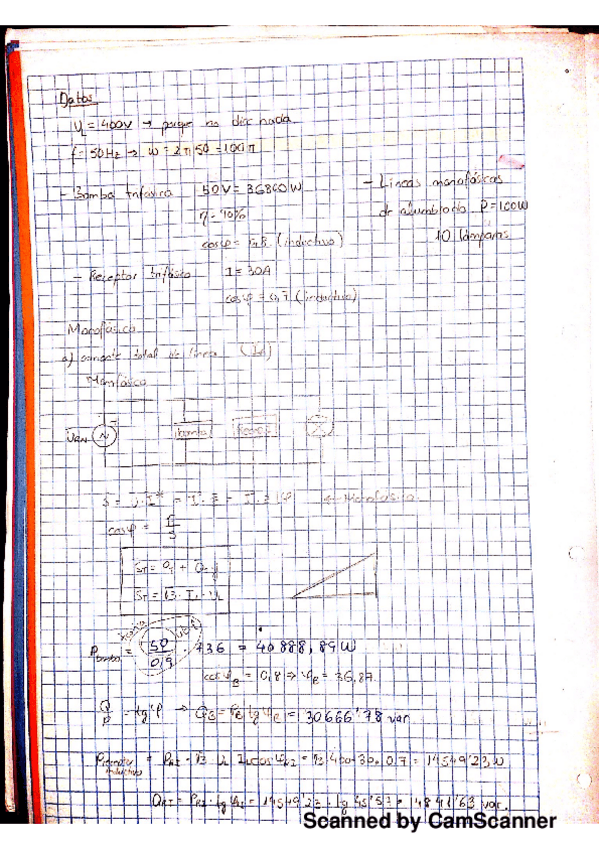 Datos
UL = 400V → porque no dice nada.
f = 50Hz → ω = 2π50 = 100π
- Bomba trifásica 50 V = 36800 W
η = 90%
cosφ = 0,8 (inductivo)
- Lineas monofásicas
de alumbrado P = 100W
10 lámparas
- Receptor trifásico I = 30A
cosφ = 0,7 (inductivo)
Monofásico
a) corriente total de linea
Monofásico
N
Bomba
S = I* = ← Monofásico
cosφ = P/S
ST = +
ST = √3 · ·
Pbomba = 50/0,9 · 736 = 40888,89 W
= 0,8 ⇒ = 36,87
Q/P = tgφ → = = 30666'78 var
Preceptor inductivo = = √3 = √3 400·30·0,7 = 14549'23 W
= = 14549'23 · tg 45'57 = 14841'63 var.
Scanned by CamScanner